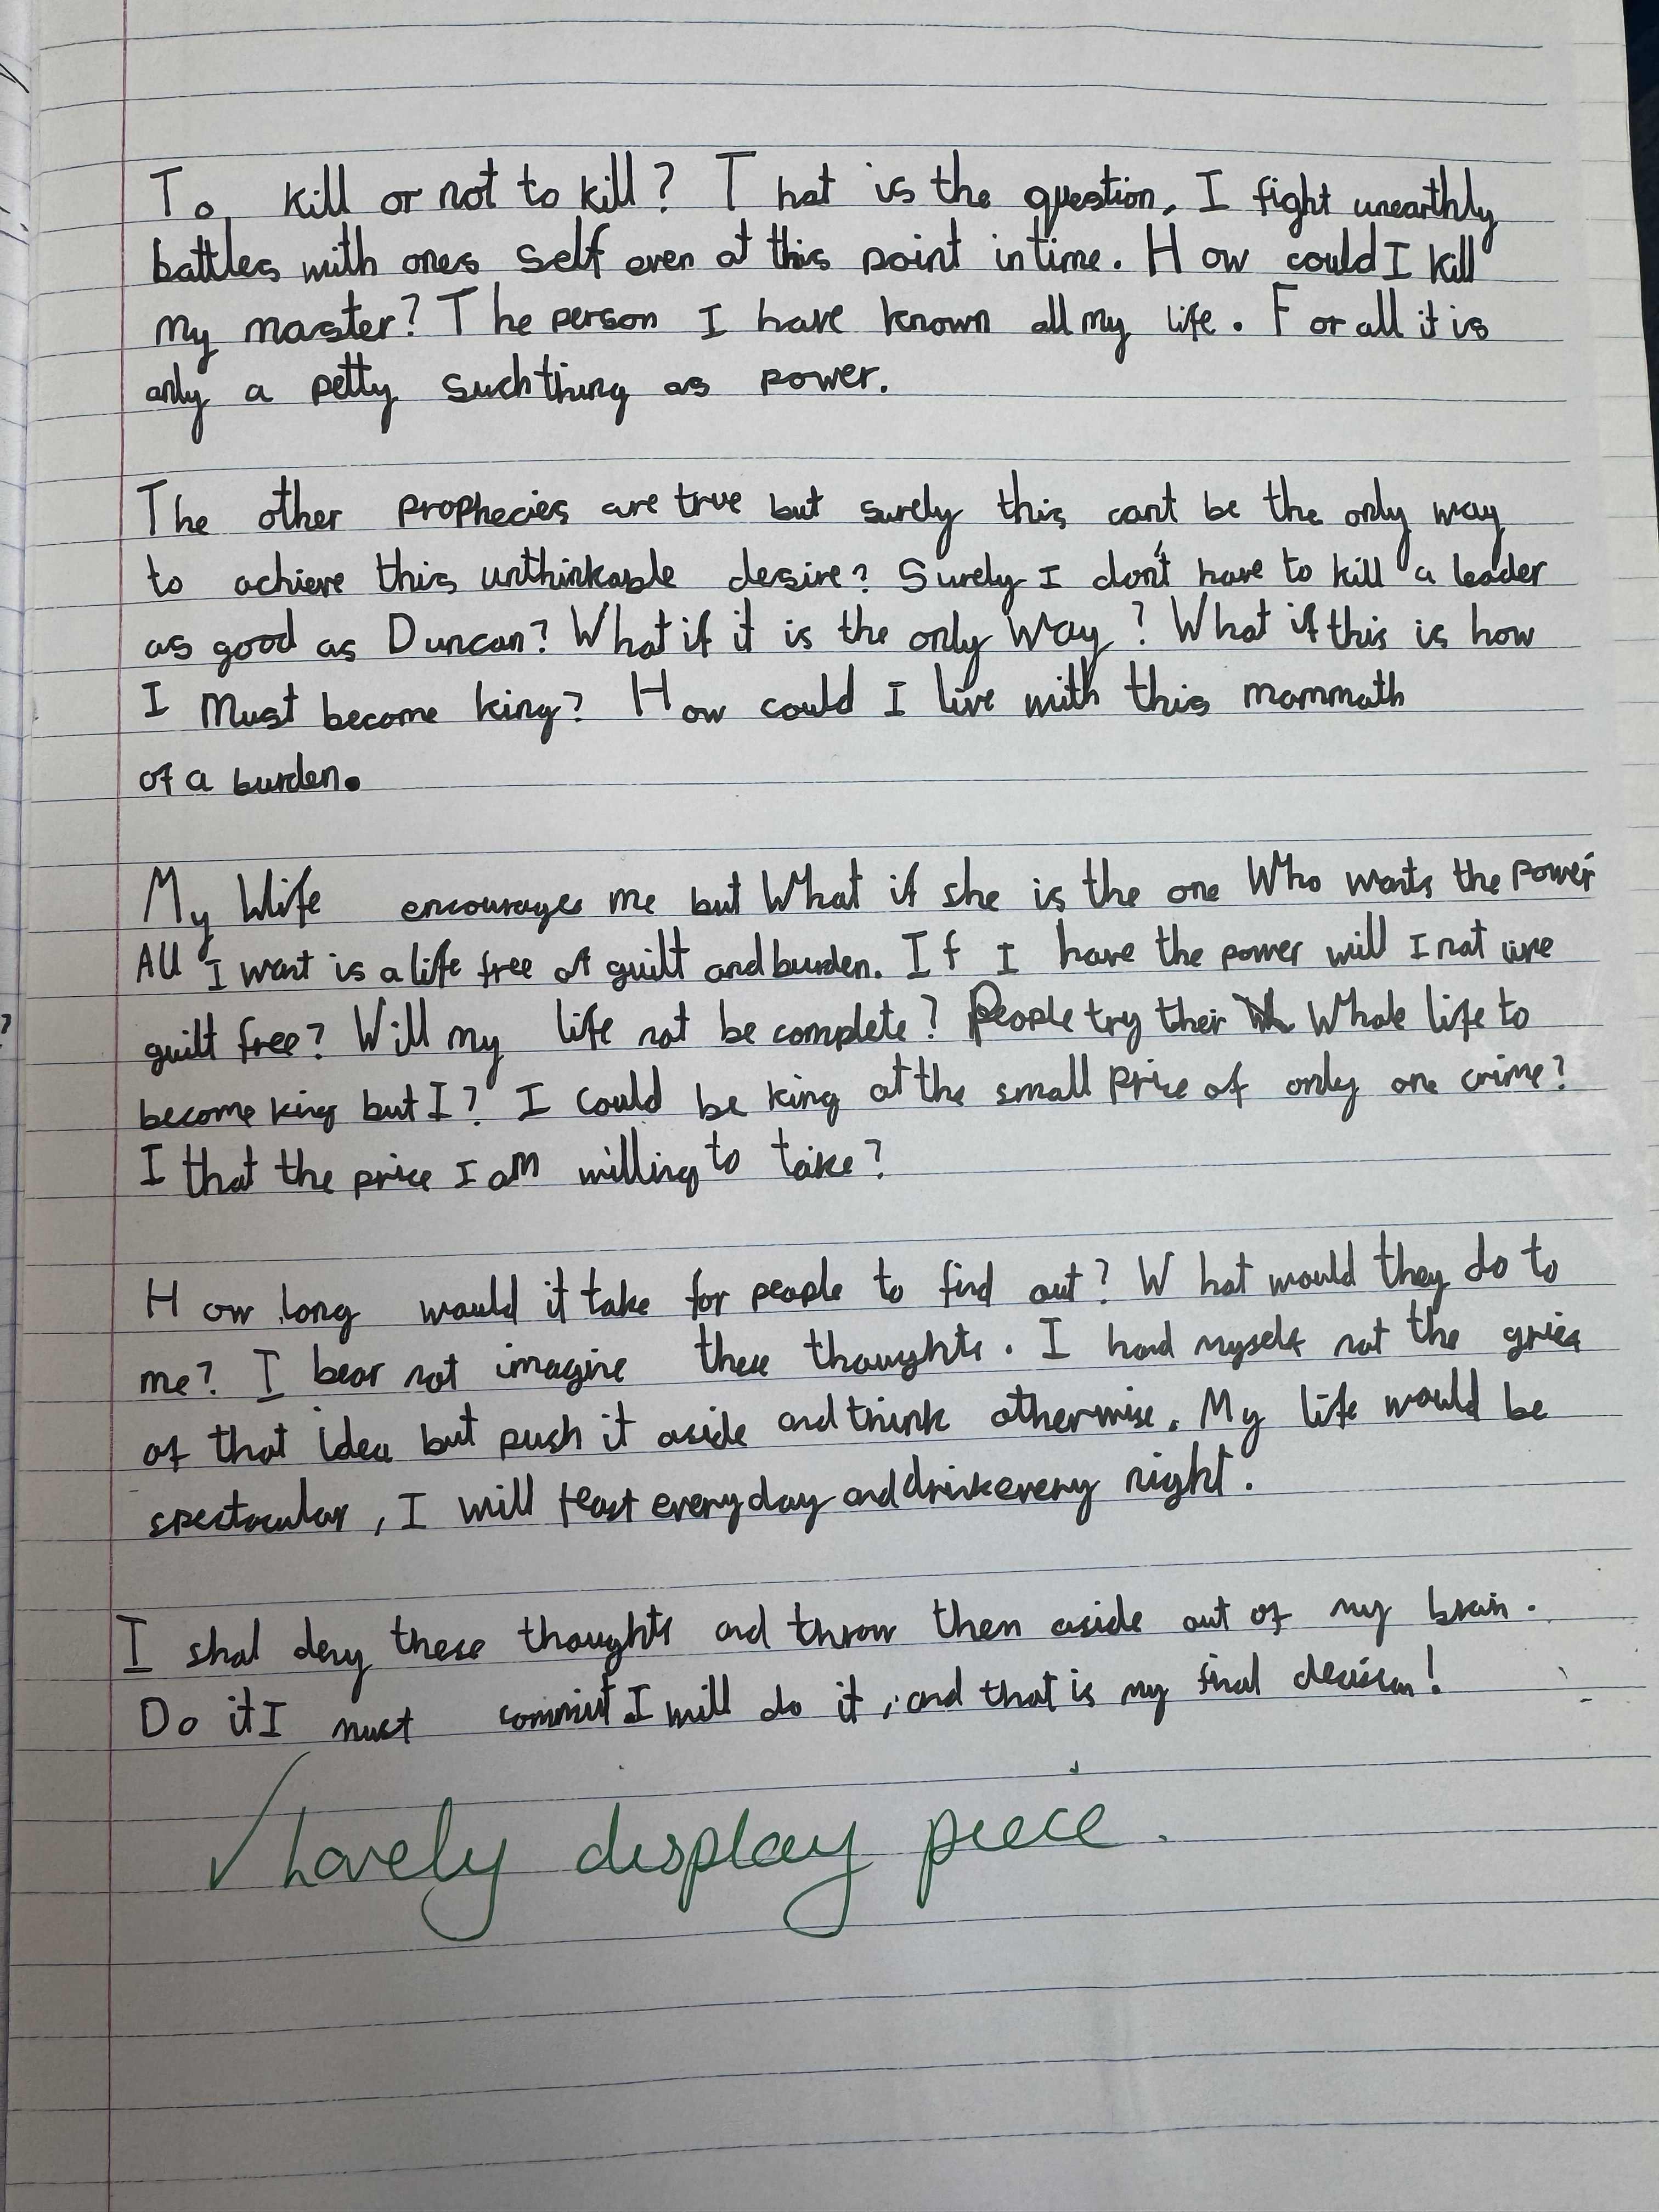 To kill or not to kill? That is the question. I fight unearthly
battles with ones self even at this point in time. How could I kill
my master? The person I have known all my life. For all it is
only a petty such thing as power.
The other prophecies are true but surely this can't be the only way
to achieve this unthinkable desire? Surely I don't have to kill a leader
as good as Duncan? What if it is the only way? What if this is how
I Must become king? How could I live with this mammoth
of a burden.
My Wife encourages me but What if she is the one Who wants the power
All I want is a life free of guilt and burden. If I have the power will I not live
guilt free? Will my life not be complete? People try their Whole life to
become king but I? I could be king at the small price of only one crime?
I that the price I am willing to take?
How long would it take for people to find out? What would they do to
me? I bear not imagine these thoughts. I hand myself not the grief
of that idea but push it aside and think otherwise. My life would be
spectacular, I will feast every day and drink every night.
I shal deny these thoughts and throw then aside out of my brain.
Do it I must commit I will do it, and that is my final decision!
Lovely display piece.
?